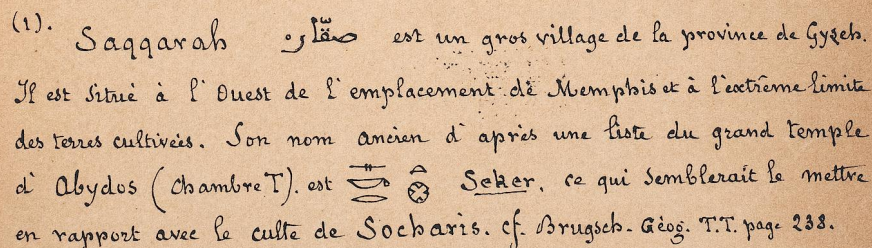 (1). Saqqarah صقّاره est un gros village de la province de Gyzeh.
Il est situé à l'Ouest de l'emplacement de Memphis et à l'extrême limite
des terres cultivées. Son nom ancien d'après une liste du grand temple
d'Abydos (chambre T). est Seker, ce qui semblerait le mettre
en rapport avec le culte de Socharis. cf. Brugsch. Géog. T.T. page 238.